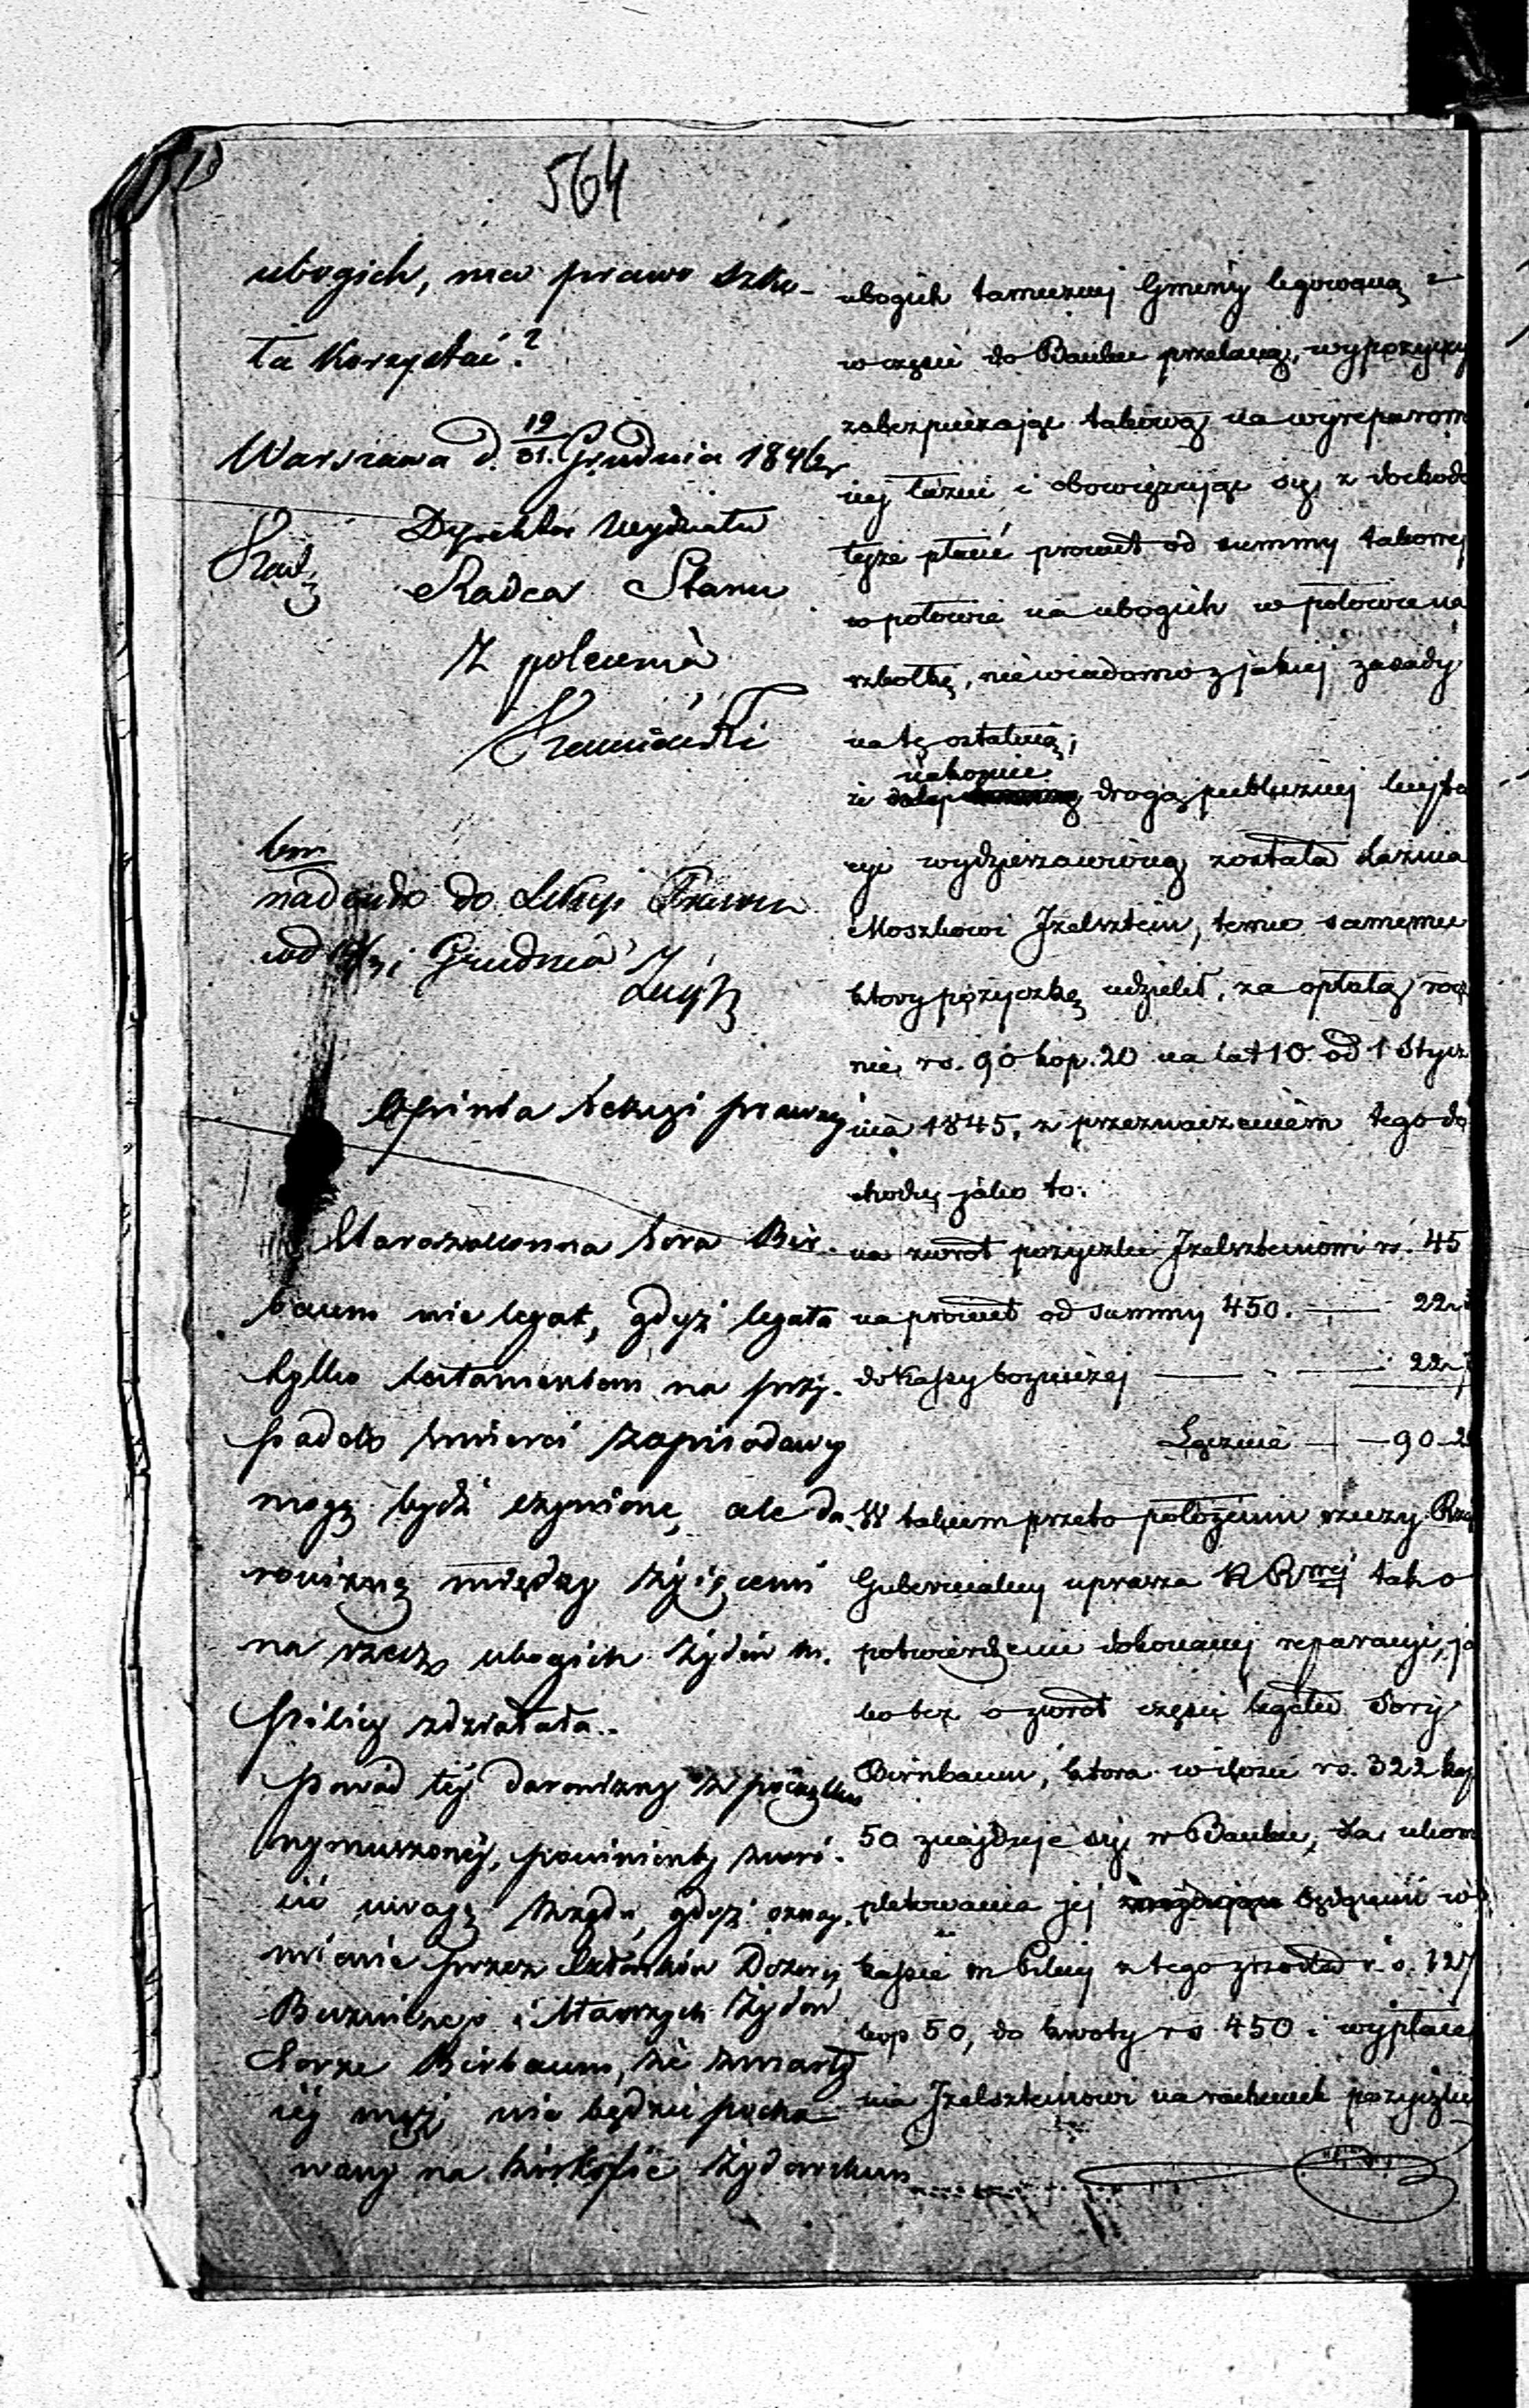 564
ubogich, ma prawo szko-
ła korzystać?
Warszawa d. 19/31. Grudnia 1846 r
Dyrektor Wydziału
Radca Stanu
Z polecenia
nadeszło do Sekcyi Prawn
Grudnia
Opinia Sekcyi prawnéj
Starozakonna Sora Bir-
baum nie legat, gdyż legata
tylko testamentem na przy-
padek śmierci zapisodawcy
mogą bydź czynione, ale da-
rowiznę między żyjącemi
na rzecz ubogich żydów m.
Pilicy zdziałała.
Powód téj darowizny w początku
wymuszonéj, powinienby zwró-
cić uwagę Rządu, gdyż oznaj-
mienie przez Członków Dozoru
Bużniczego i starszych żydów
Sorze Birbaum, że zmarły
iéj mąż nie będzie pocho-
wany na kirkofie żydowskim
ubogich tamecznej Gminy legowaną i
w części do Banku przelaną, wypożyczy
zabezpieczając takową na wyreparow
nej łaźni i obowięzując się z dochodó
tejże płacić procent od summy takowej
w połowie na ubogich w połowie na
szkółkę, niewiadomo z jakiej zasady
na tę ostatnią;
nakoniec
że drogą publicznej licyta
cyi wydzierzawioną została łaźnia
Moszkowi Izelsztein, temu samemu
który pożyczkę udzielił, za opłatą rocz
nie rs. 90 kop. 20 na lat 10 od 1 Stycz
nia 1845, z przeznaczeniem tego do
chodu jako to:
na zwrot pożyczki Izelszteinowi rs. 45
na procent od summy 450. — 22
do Kassy bożniczej — 22
Łącznie — 90 - 2
W takiem przeto położeniu rzeczy Rzą
Gubernialny uprasza K R tak o
potwierdzenie dokonanej reparacyi, ja
ko też o zwrot części legatu Sory
Birnbaum, która w ilości rs. 322 kop
50 znajduje się w Banku, dla ukom
pletowania jej będącemi w
kassie m Pilicy z tego zrzodła rs. 127
kop 50, do kwoty rs 450 i wypłace
nia Izelszteinowi na rachunek pożyczki